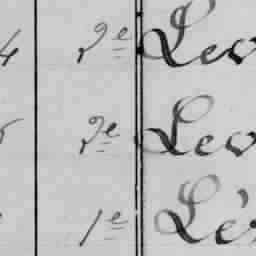 4 2e Lev
5 2e Lev
1e Lé